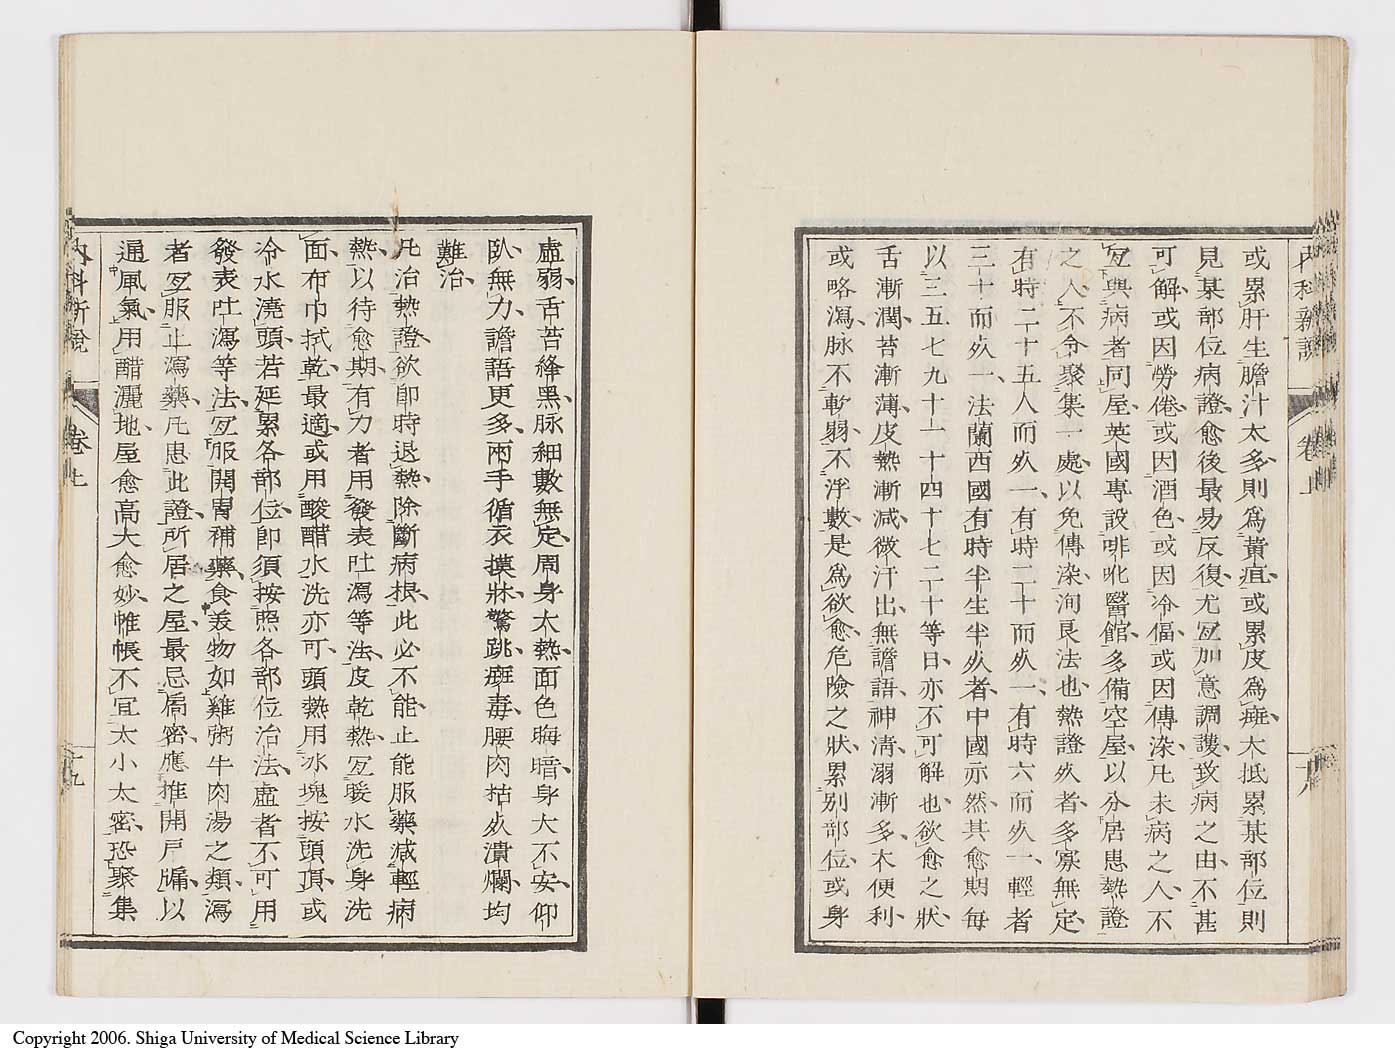 內科新說
卷上
十八
或累肝生膽汁太多則為黃疸或累皮為斑大抵累某部位則
見某部位病證愈後最易反復尤宐加意調護致病之由不甚
可解或因勞倦或因酒色或因冷傴或因傳染凡未病之人不
宐與病者同屋英國專設啡吡醫館多備空屋以分居患熱證
之人不令聚集一處以免傳染洵良法也熱證㱠者多寡無定
有時二十五人而㱠一有時二十而㱠一有時六而㱠一輕者
三十而㱠一法蘭西國有時半生半㱠者中國亦然其愈期每
以三五七九十一十四十七二十等日亦不可解也欲愈之狀
舌漸潤苔漸薄皮熱漸減微汗出無譫語神清溺漸多大便利
或略瀉脉不軟弱不浮數是為欲愈危險之狀累別部位或身
虛弱舌苔絳黑脉細數無定周身大熱面色晦暗身大不安仰
臥無力譫語更多兩手循衣摸牀驚跳斑毒腰肉枯㱠潰爛均
難治
凡治熱證欲卽時退熱除斷病根此必不能止能服藥減輕病
熱以待愈期有力者用發表吐瀉等法皮乾熱宐暖水洗身洗
面布巾拭乾最適或用酸醋水洗亦可頭熱用冰塊按頭頂或
冷水澆頭若延累各部位卽須按照各部位治法虛者不可用
發表吐瀉等法宐服開胃補藥食羙物如雞粥牛肉湯之類瀉
者宐服止瀉藥凡患此證所居之屋最忌局密應推開戶牖以
通風氣用醋灑地屋愈高大愈妙帷帳不宜太小太密恐聚集
內科新說
卷上
十九
Copyright 2006. Shiga University of Medical Science Library